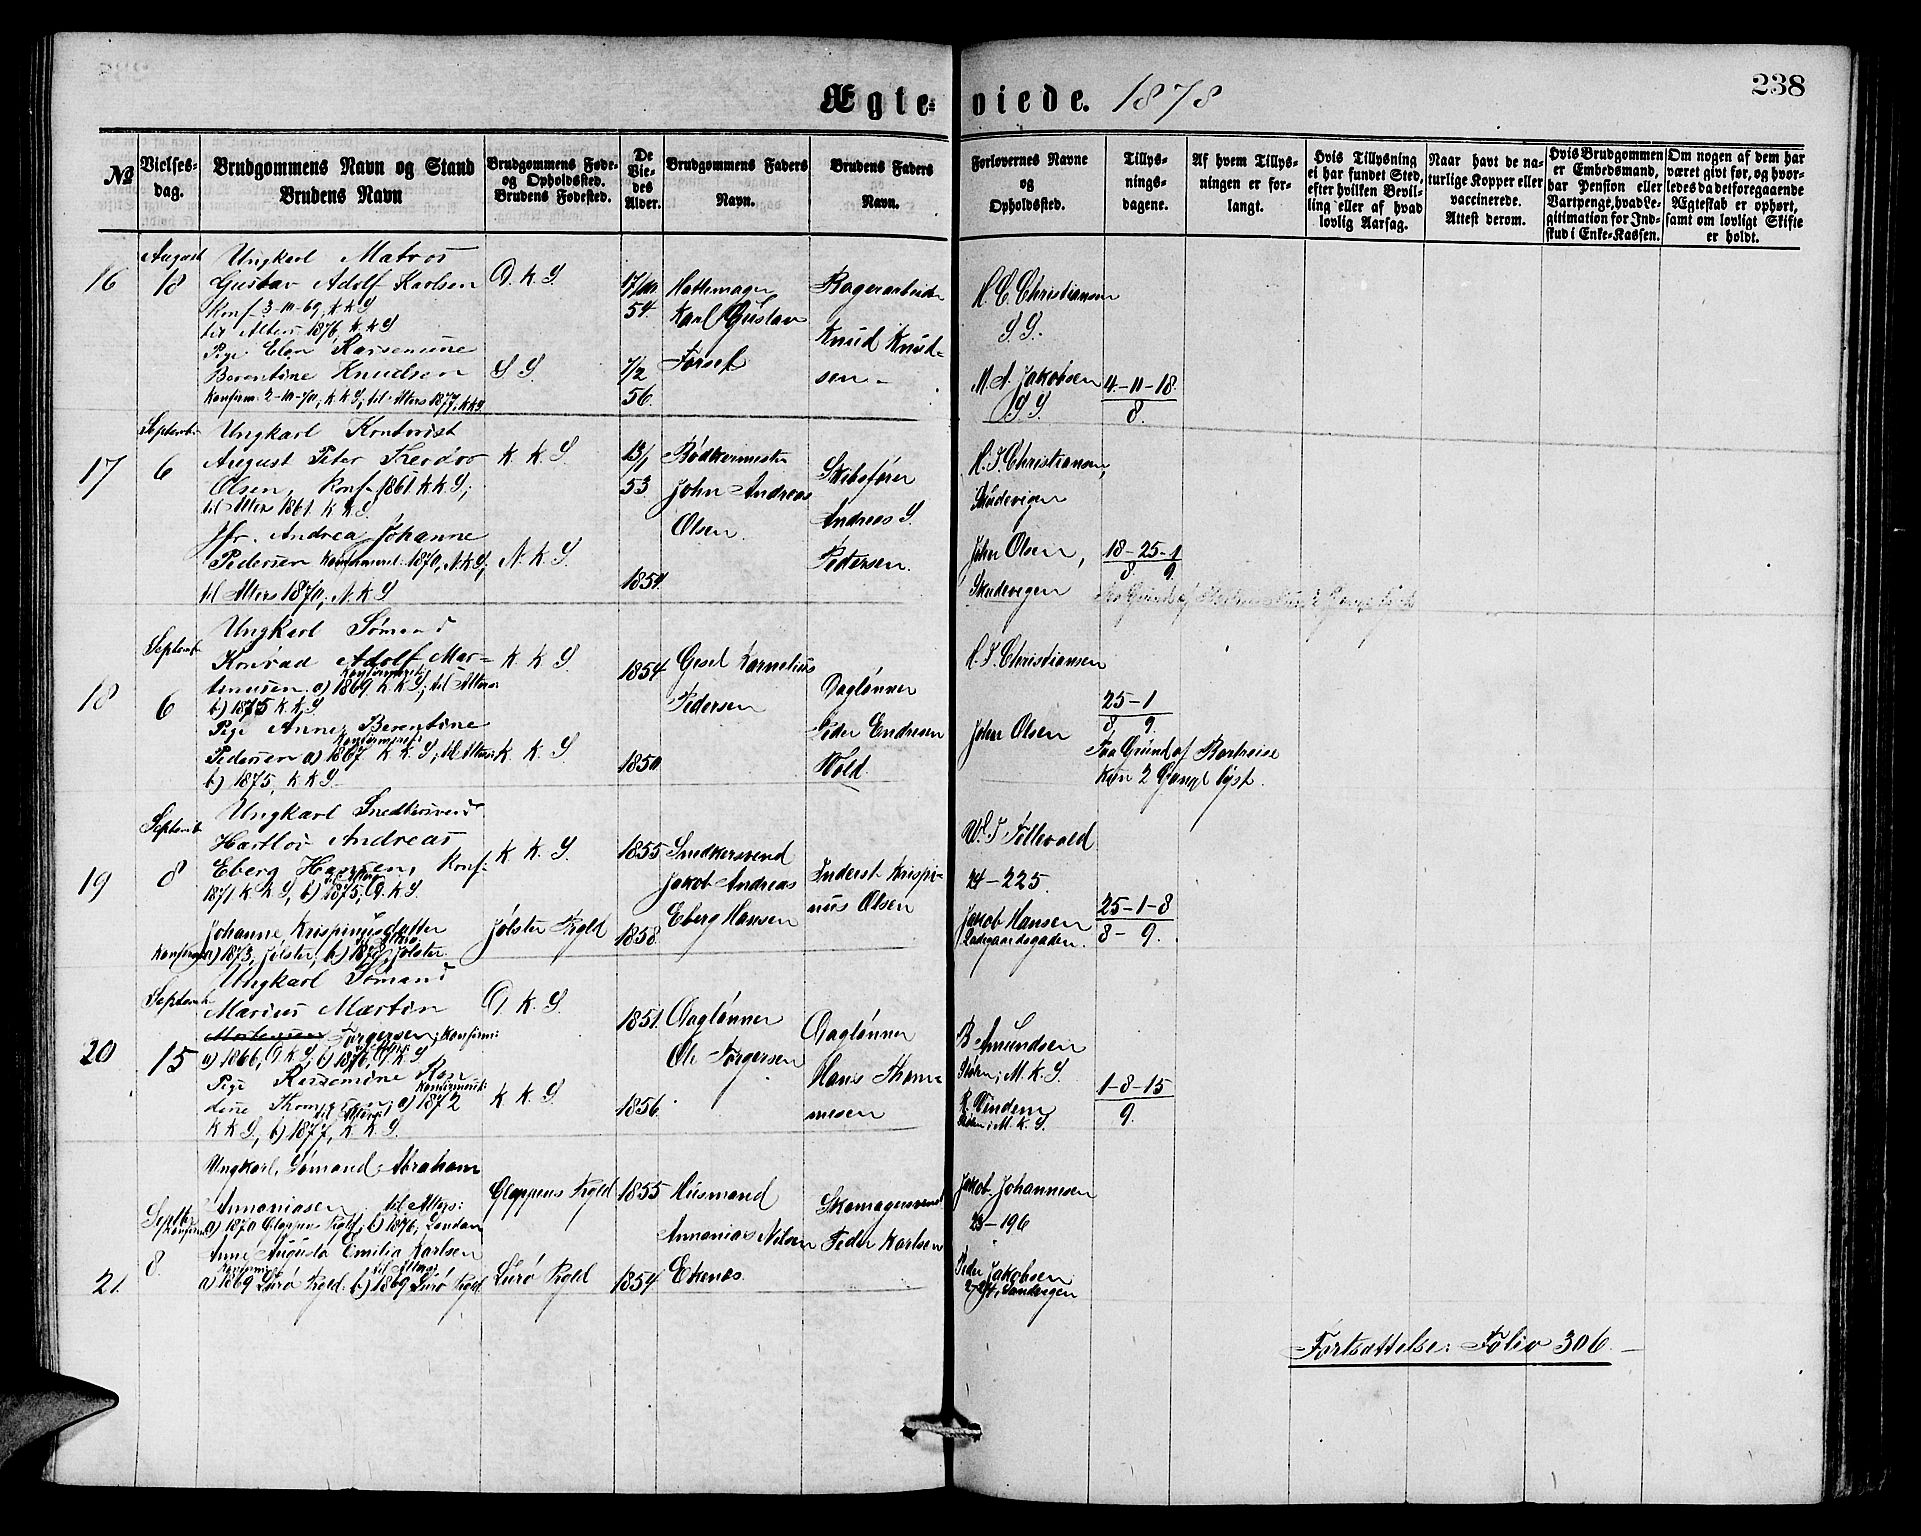 238
Ægte- viede. 1878
No
Vielses-
dag.
Brudgommens Navn og Stand
Brudens Navn
Brudgommens Føde-
og Opholdssted.
Brudens Fødested.
De
Vie-
des
Alder.
Brudgommens Faders
Navn.
Brudens Faders
Navn.
Forlovernes Navne
og
Opholdssted.
Tillys-
nings-
dagene.
Af hvem Tillys-
ningen er for-
langt.
Hvis Tillysning
ei har fundet Sted,
efter hvilken Bevil-
ling eller af hvad
lovlig Aarsag.
Naar havt de na-
turlige Kopper eller
vaccinerede.
Attest derom.
Hvis Brudgommen
er Embedsmand,
har Pension eller
Vartpenge, hvad Le-
gitimation for Ind-
skud i Enke-Kassen.
Om nogen af dem har
været givt før, og hvor-
ledes da det foregaaende
Ægteskab er ophørt,
samt om lovligt Skifte
er holdt.
16
August
18
Ungkarl Matros
Gustav Adolf Karlsen
Konf. 3-10-69, K K S
til Alters 1876, K K S
Pige Elen Rasmine
Berentine Knudsen
Konfirm. 2-10-70, K K S, til Alters 1877, K K S
D. K. S
S S
54.
7/2
56.
Hattemager
Karl Gustav
Forsel
Knud Knud-
sen
H. C. Christiansen
S S.
M. A. Jakobsen
S S.
4-11-18
8.
17
Septemb.
6
Ungkarl Kontorist
August Peter Teodor
Olsen, Konf. 1861 K K S;
til Alters 1861. K K S.
Jfr. Andrea Johanne
Pedersen Konfirmeret 1870, N. K S;
til Alters 1870; N. K S
K. K. S.
N. K. S
13/1
53
1854
Bødkermester
John Andreas
Olsen.
Skibsfører
Andreas S.
Petersen.
H. J. Christiansen,
Skudevigen
John Olsen,
Skudevigen
18-25-1
8 9.
18
Septemb.
6
Ungkarl Sømand
Konrad Adolf Mar-
tinusen a) Konfirmeret 1869 K K S; til Alters
b) 1875 K K S
Pige Anne Berentine
Pedersen a) Konfirmeret 1867 K K S; til Alters
b) 1875, K K S.
K. K. S
K. K. S
1854
1850
Gesel Kornelius
Pedersen
Daglønner
Peder Endresen
Wold.
H. J. Christiansen
John Olsen
25-1
8 9.
Paa Grund af Bortreise
kun 2 Gange lyst.
19
Septemb.
8
Ungkarl Snedkersvend
Hartlov Andreas
Eberg Hansen, Konf.
1871 K K S, b) til Alters 1875, D. K S.
Johanne Krispinusdatter
Konfirm. a) 1873, Jølster, b) til Alters 1878, Jølster
K. K. S.
Jølster Pgld
1855
1858
Snedkersvend
Jakob Andreas
Eberg Hansen
Inderst Krispi-
nus Olsen
24-225.
Jakob Hansen
Ladegaardsgaden.
25-1-8
8-9.
20
Septemb.
15
Ungkarl Sømand
Marius Martin
Torgersen, Konfirm:
a) 1866, D K S, b) til Alters 1876, D. K S
Pige Rasmine Ran
dine Thomesen, a) Konfirmeret 1872
K K S, b) til Alters 1877, K. K S.
D. K. S
K K S.
1851.
1856.
Daglønner
Ole Torgersen
Daglønner
Hans Thom-
mesen
B Amundsen
Støen; M. K. S.
Støen; M. K. S.
1-8-15
9.
21.
Septbr.
8.
Ungkarl, Sømand, Abraham
Annaniasen til Alters:
Konfirm. a) 1870 Gloppens Pgld, b) 1876, London
Anne Augusta Emilia Karlsen
a) Konfirmeret 1869 Lurø Pgld. b) til Alters 1869 Lurø Pgld
Gloppens Pgld
Lurø Pgld
1855
1854
Husmand
Annanias Nilsen
Ekenæs.
Skomagersvend
Peder Karlsen
Jakob Johannesen
23-196
Peder Jakobsen
Sandvigen
Fortsættelse: Folio 306.